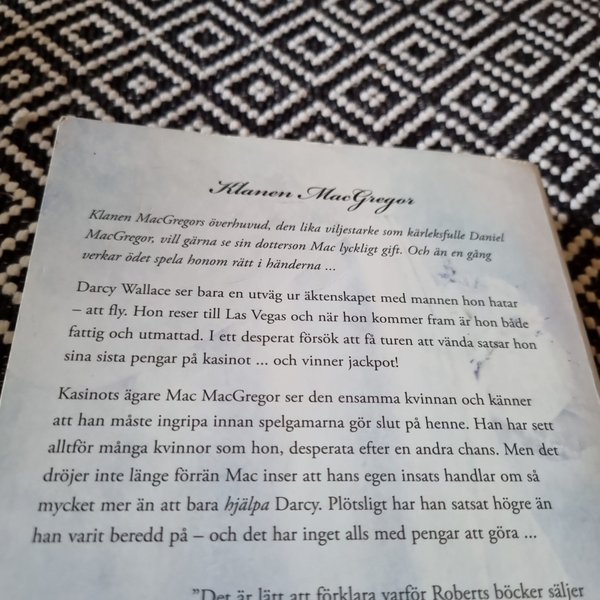 Klanen MacGregor
Klanen MacGregors överhuvud, den lika viljestarke som kärleksfulle Daniel
MacGregor, vill gärna se sin dotterson Mac lyckligt gift. Och än en gång
verkar ödet spela honom rätt i händerna ...
Darcy Wallace ser bara en utväg ur äktenskapet med mannen hon hatar
– att fly. Hon reser till Las Vegas och när hon kommer fram är hon både
fattig och utmattad. I ett desperat försök att få turen att vända satsar hon
sina sista pengar på kasinot ... och vinner jackpot!
Kasinots ägare Mac MacGregor ser den ensamma kvinnan och känner
att han måste ingripa innan spelgamarna gör slut på henne. Han har sett
alltför många kvinnor som hon, desperata efter en andra chans. Men det
dröjer inte länge förrän Mac inser att hans egen insats handlar om så
mycket mer än att bara hjälpa Darcy. Plötsligt har han satsat högre än
han varit beredd på – och det har inget alls med pengar att göra ...
”Det är lätt att förklara varför Roberts böcker säljer